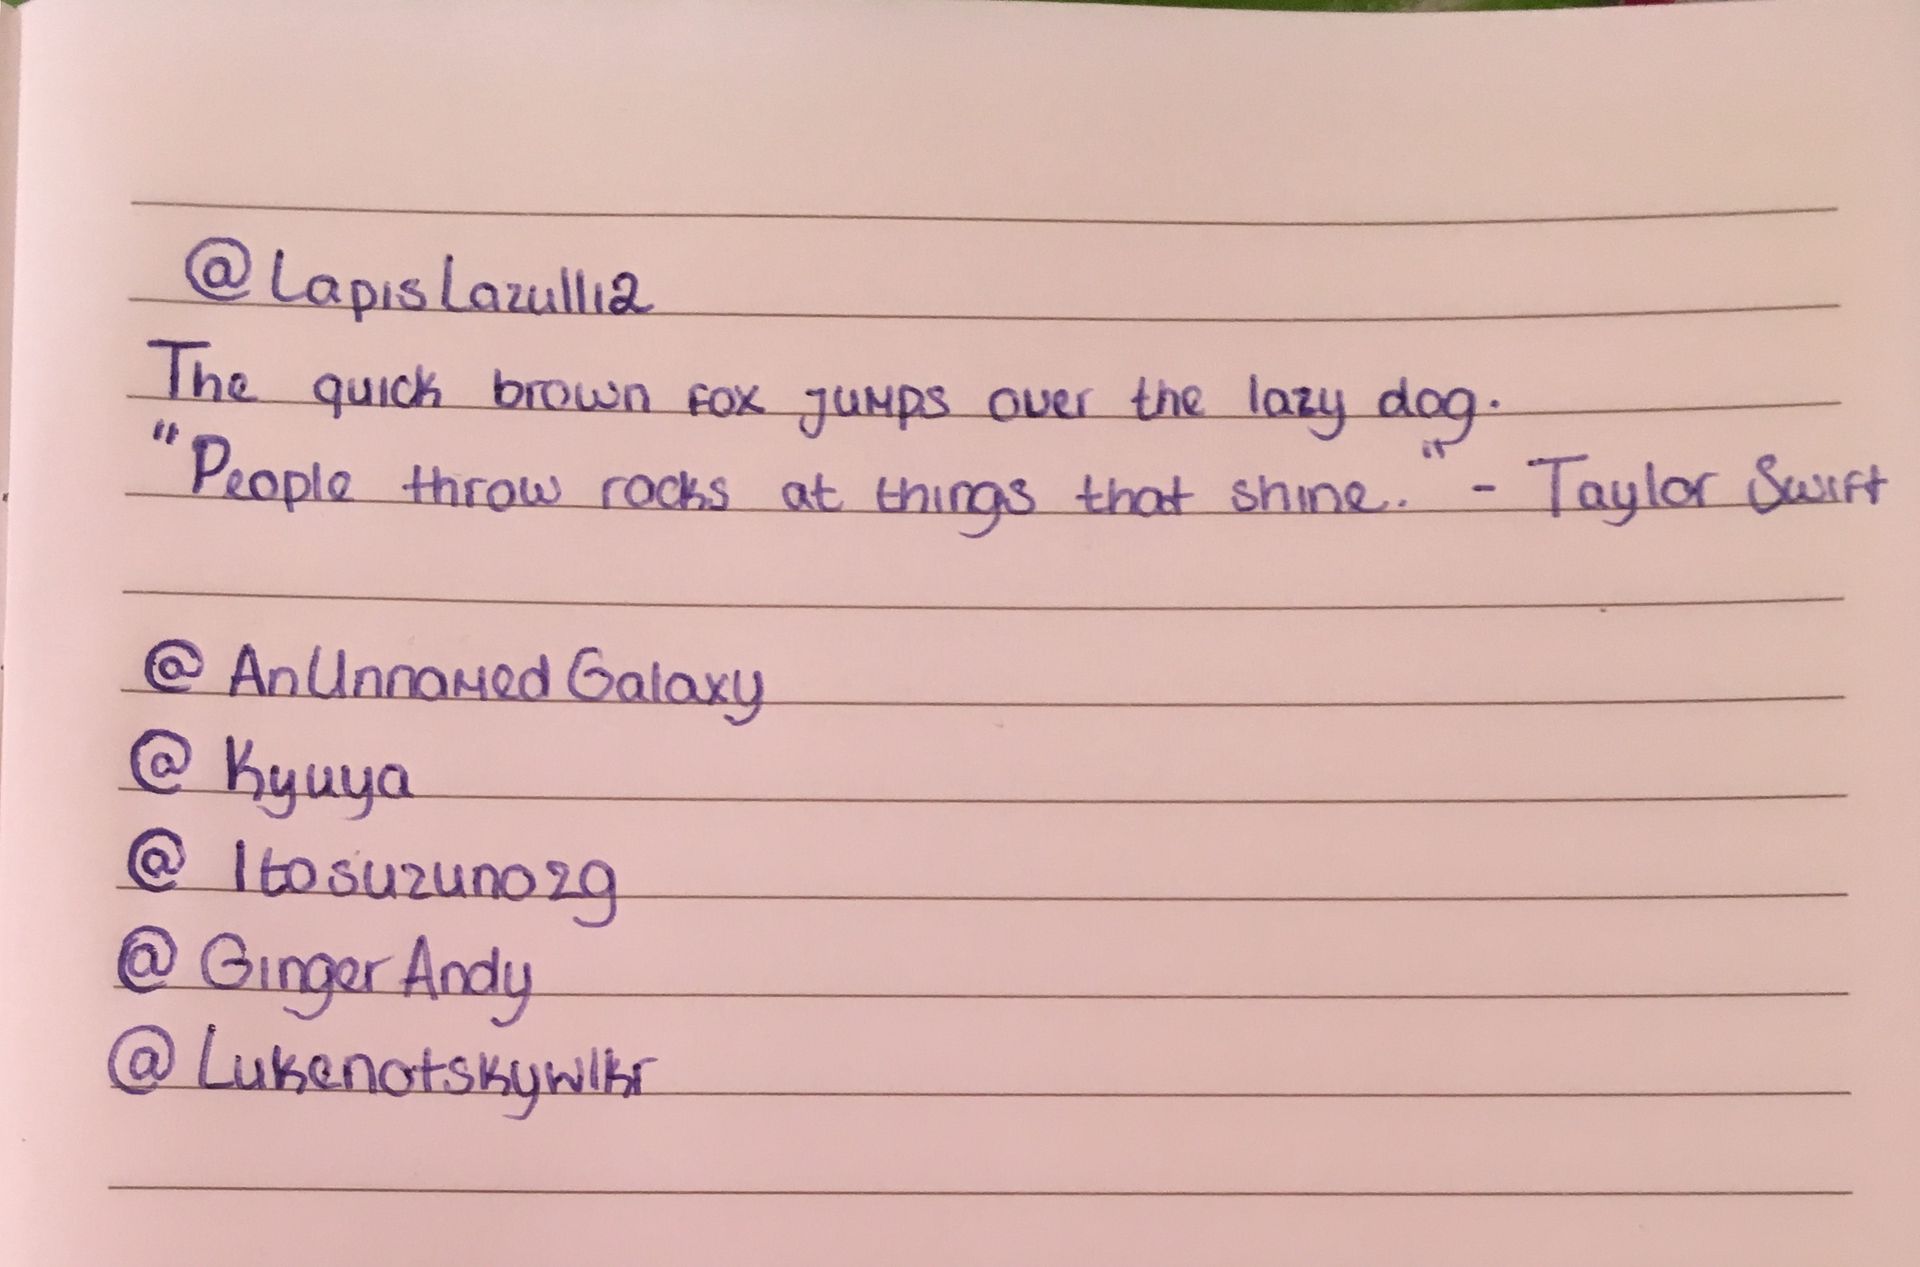 @LapisLazulli2
The quick brown fox jumps over the lazy dog.
"People throw rocks at things that shine." - Taylor Swift
@AnUnnamedGalaxy
@Kyuya
@Itosuzuno29
@GingerAndy
@Lukenotskywlkr